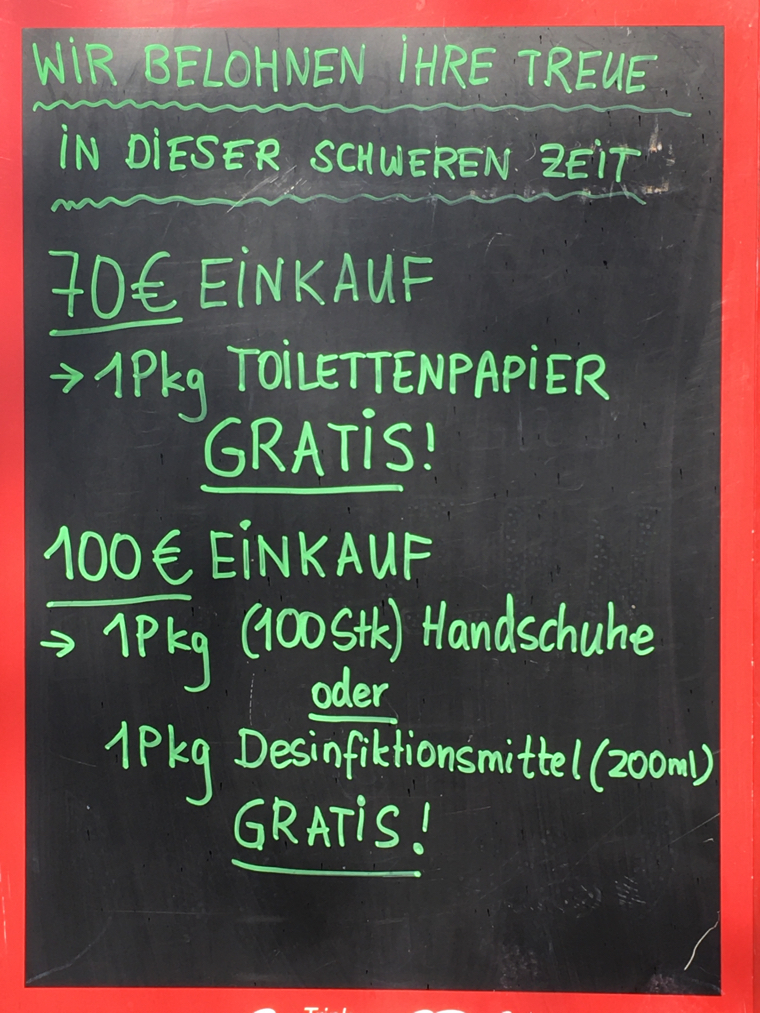 WIR BELOHNEN IHRE TREUE
IN DIESER SCHWEREN ZEIT
70€ EINKAUF
→ 1Pkg TOILETTENPAPIER
GRATIS!
100€ EINKAUF
→ 1Pkg (100Stk) Handschuhe
oder
1Pkg Desinfiktionsmittel (200ml)
GRATIS!